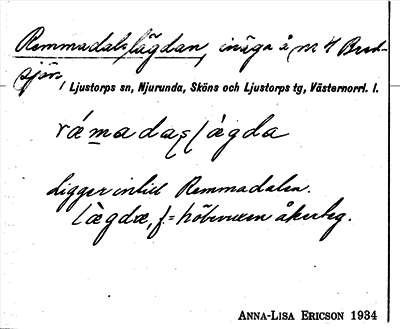 Remmadalslägdan, inäga å nr 4 Bred-
sjön,
/ Ljustorps sn, Njurunda, Sköns och Ljustorps tg, Västernorrl. l.
rémadaʂlàgda
Ligger intill Remmadalen.
làgdæ, f. = höbevuxen åkerteg.
ANNA-LISA ERICSON 1934